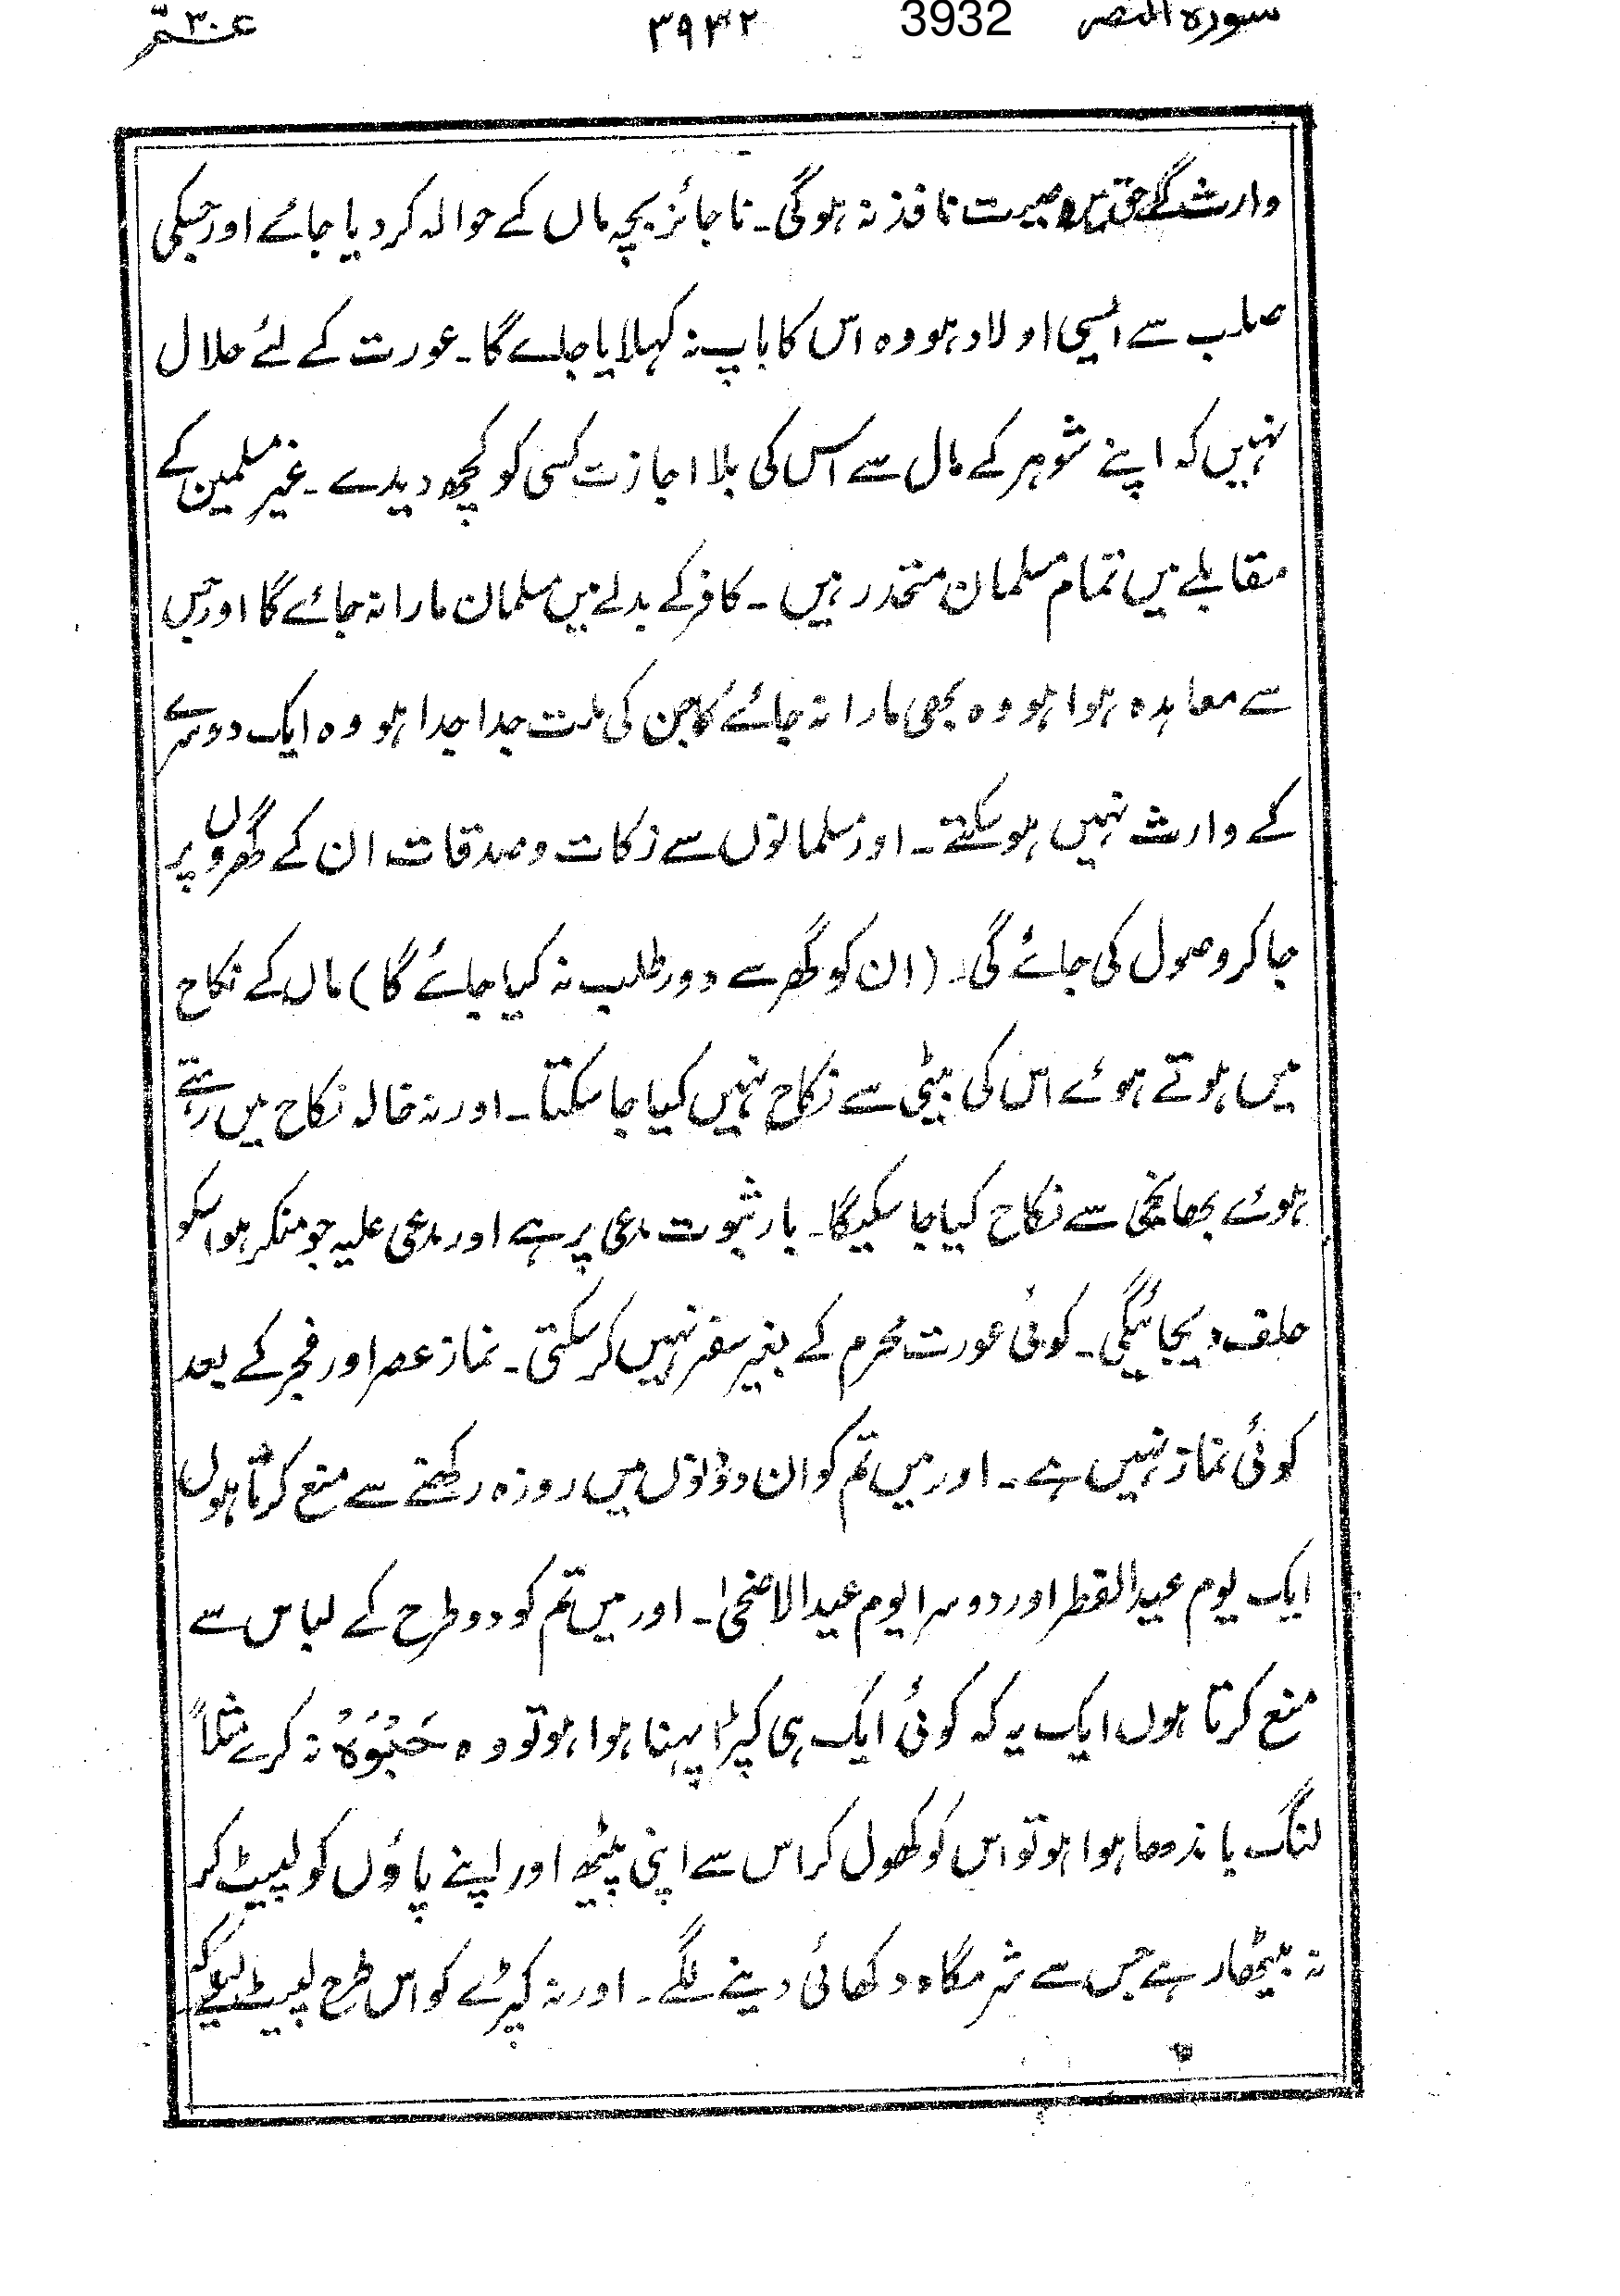 سورہ النصر 3932 ۳۹۳۲ عمّ۳۰
وارث کے حق میں وصیت نافذ نہ ہوگی۔ ناجائز بچہ ماں کے حوالہ کر دیا جائے اور جسکی
صلب سے ایسی اولاد ہو وہ اس کا باپ نہ کہلایا جائے گا۔ عورت کے لئے حلال
نہیں کہ اپنے شوہر کے مال سے اس کی بلا اجازت کسی کو کچھ دیدے۔ غیر مسلمین کے
مقابلے میں تمام مسلمان متحد رہیں۔ کافر کے بدلے میں مسلمان مارا نہ جائے گا اور جس
سے معاہدہ ہوا ہو وہ بھی مارا نہ جائے گا جن کی ملت جدا جدا ہو وہ ایک دوسرے
کے وارث نہیں ہو سکتے۔ اور مسلمانوں سے زکات و صدقات ان کے گھروں پر
جا کر وصول کی جائے گی۔ (ان کو گھر سے دور طلب نہ کیا جائے گا) ماں کے نکاح
میں ہوتے ہوئے اس کی بیٹی سے نکاح نہیں کیا جا سکتا۔ اور نہ خالہ نکاح میں رہتے
ہوئے بھانجی سے نکاح کیا جا سکیگا۔ بار ثبوت مدعی پر ہے اور مدعی علیہ جو منکر ہو اسکو
حلف دیجائیگی۔ کوئی عورت محرم کے بغیر سفر نہیں کر سکتی۔ نماز عصر اور فجر کے بعد
کوئی نماز نہیں ہے۔ اور میں تم کو ان دو دنوں میں روزہ رکھنے سے منع کرتا ہوں
ایک یوم عید الفطر اور دوسرا یوم عید الاضحیٰ۔ اور میں تم کو دو طرح کے لباس سے
منع کرتا ہوں ایک یہ کہ کوئی ایک ہی کپڑا پہنا ہوا ہو تو وہ حَبْوَہْ نہ کرے مثلاً
لنگ باندھا ہوا ہو تو اس کو کھول کر اس سے اپنی پیٹھ اور اپنے پاؤں کو لپیٹ کر
نہ بیٹھا رہے جس سے شرمگاہ دکھائی دینے لگے۔ اور نہ کپڑے کو اس طرح لپیٹ لیوے کہ